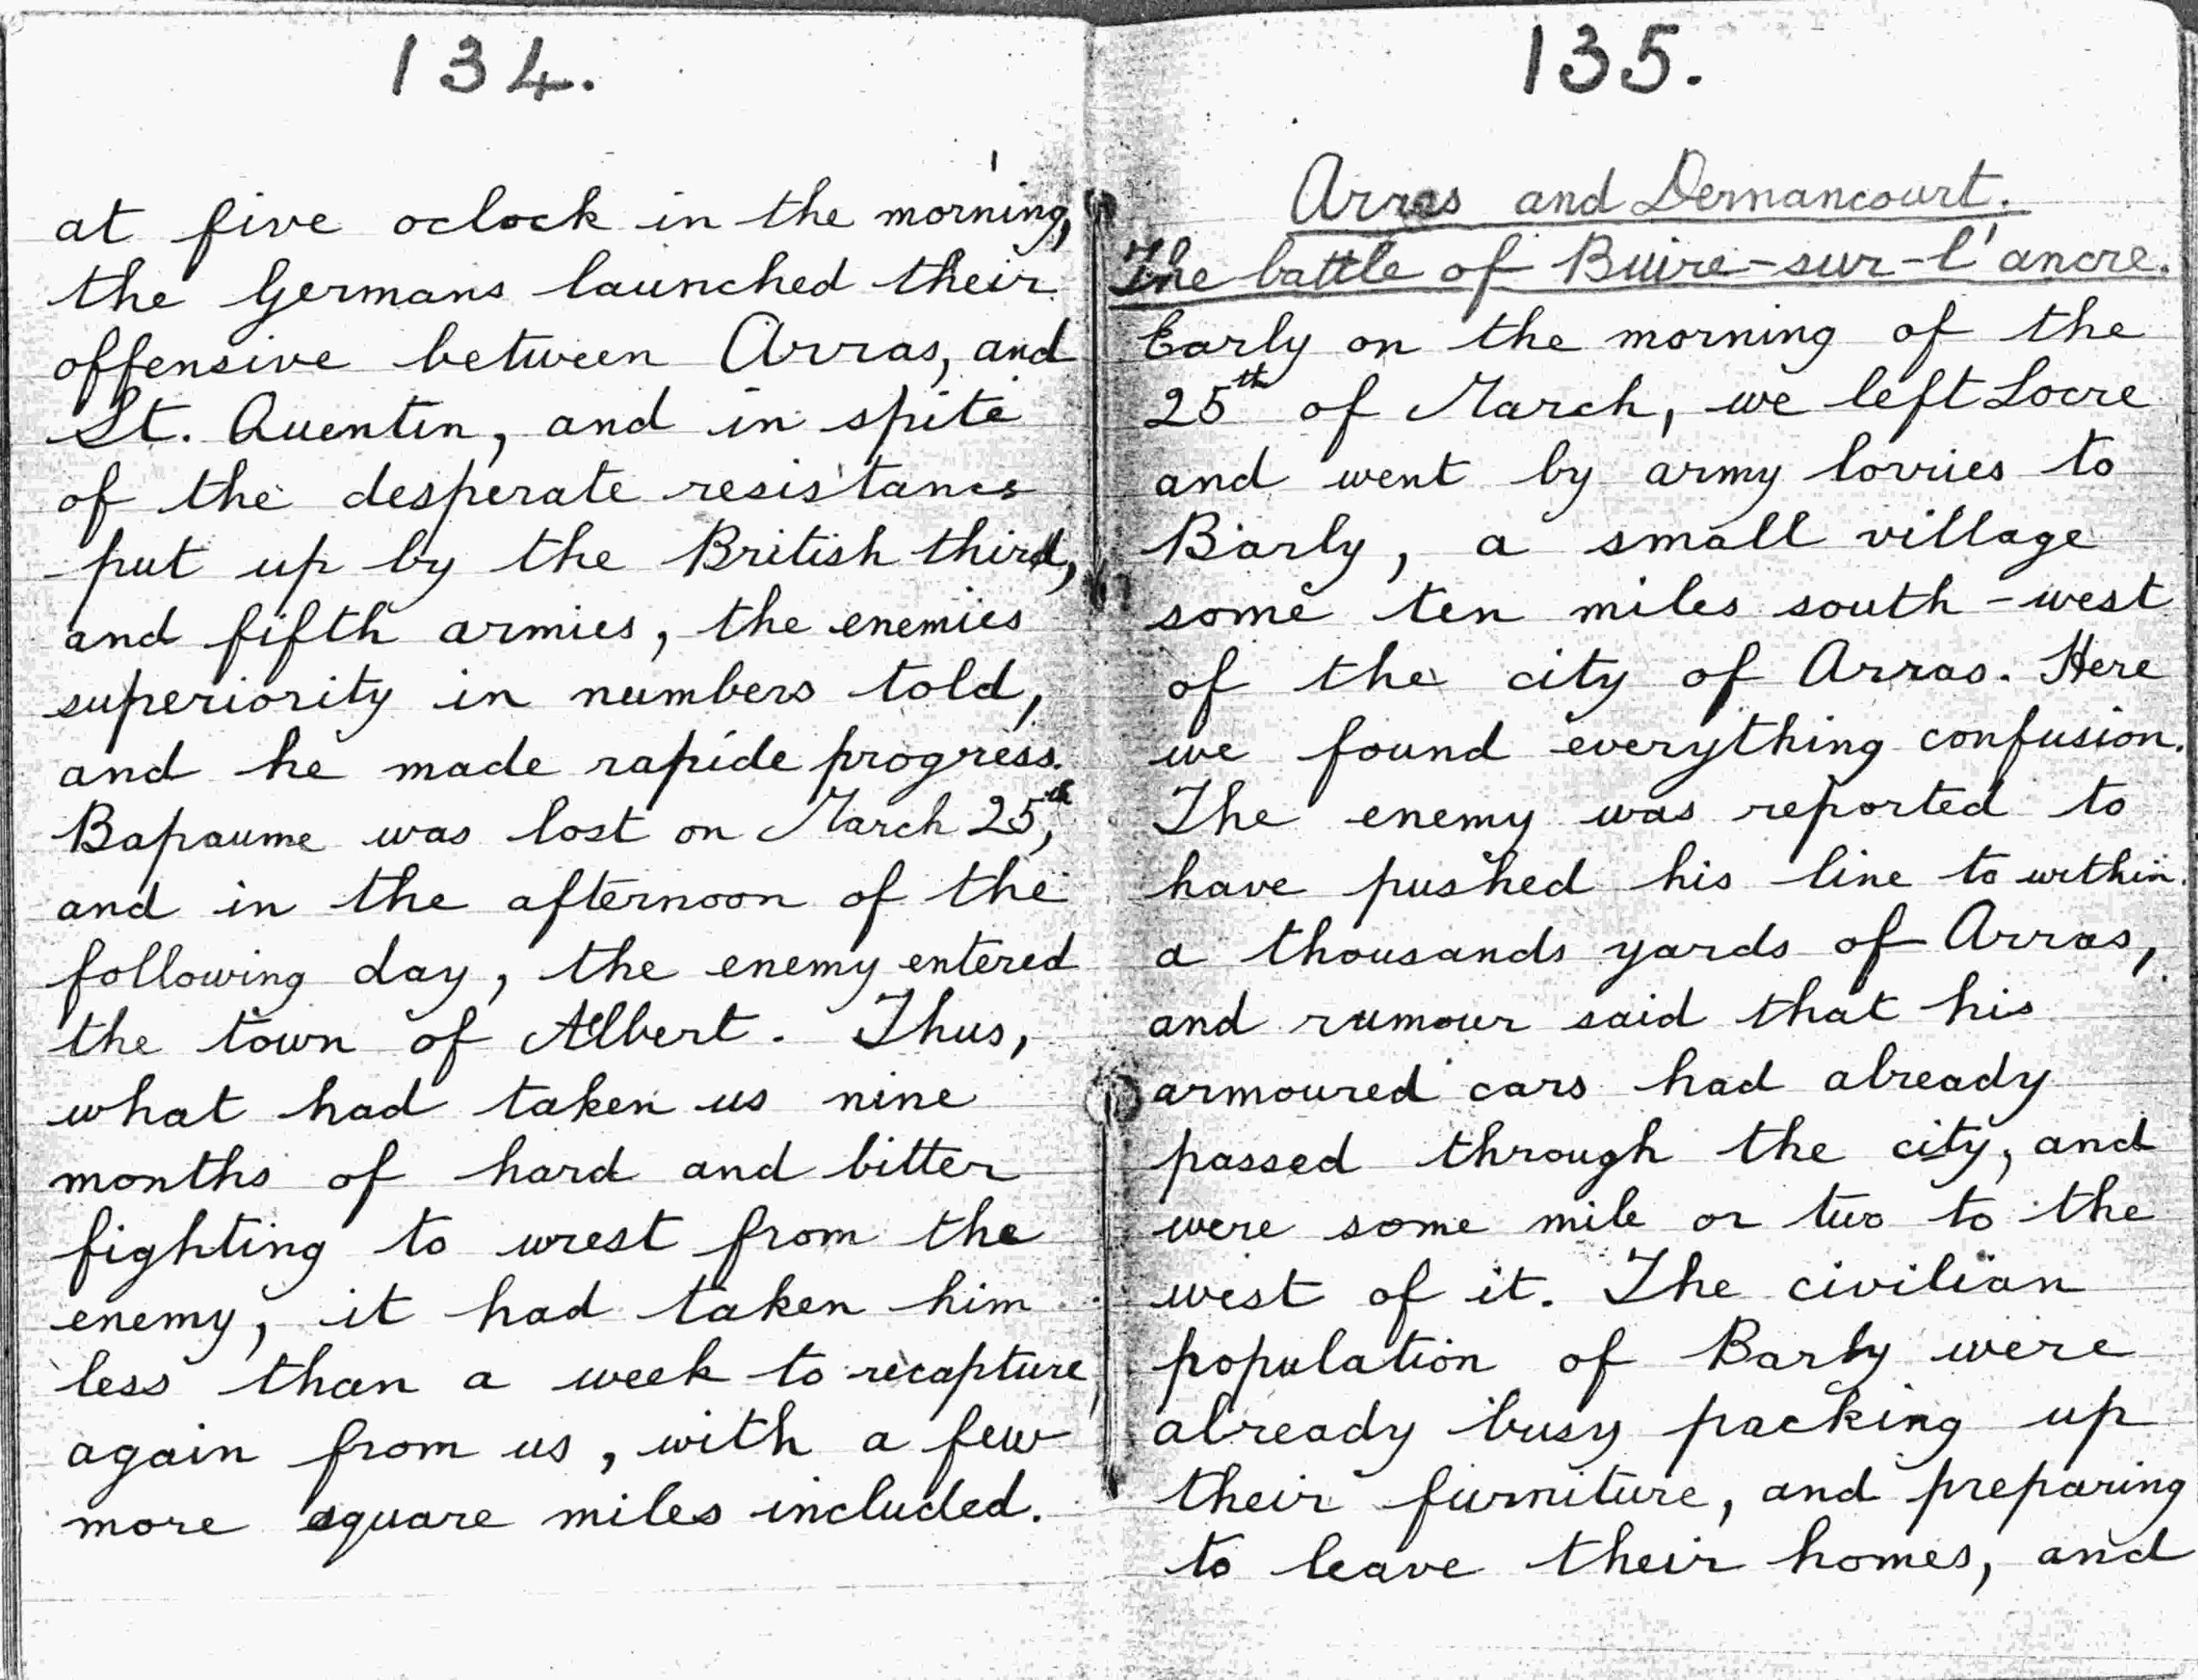 134.
at five oclock in the morning,
the Germans launched their
offensive between Arras, and
St. Quentin, and in spite
of the desperate resistance
put up by the British third,
and fifth armies, the enemies
superiority in numbers told,
and he made rapide progress.
Bapaume was lost on March 25th,
and in the afternoon of the
following day, the enemy entered
the town of Albert. Thus,
what had taken us nine
months of hard and bitter
fighting to wrest from the
enemy, it had taken him
less than a week to recapture
again from us, with a few
more square miles included.
135.
Arras and Dernancourt.
The battle of Buire-sur-l'ancre.
Early on the morning of the
25th of March, we left Locre
and went by army lorries to
Barly, a small village
some ten miles south-west
of the city of Arras. Here
we found everything confusion.
The enemy was reported to
have pushed his line to within
a thousands yards of Arras,
and rumour said that his
armoured cars had already
passed through the city, and
were some mile or two to the
west of it. The civilian
population of Barly were
already busy packing up
their furniture, and preparing
to leave their homes, and